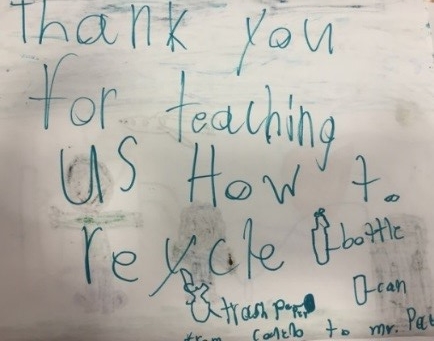 Thank you
for teaching
US How to
reycle
bottle
can
trash paper
from to mr.